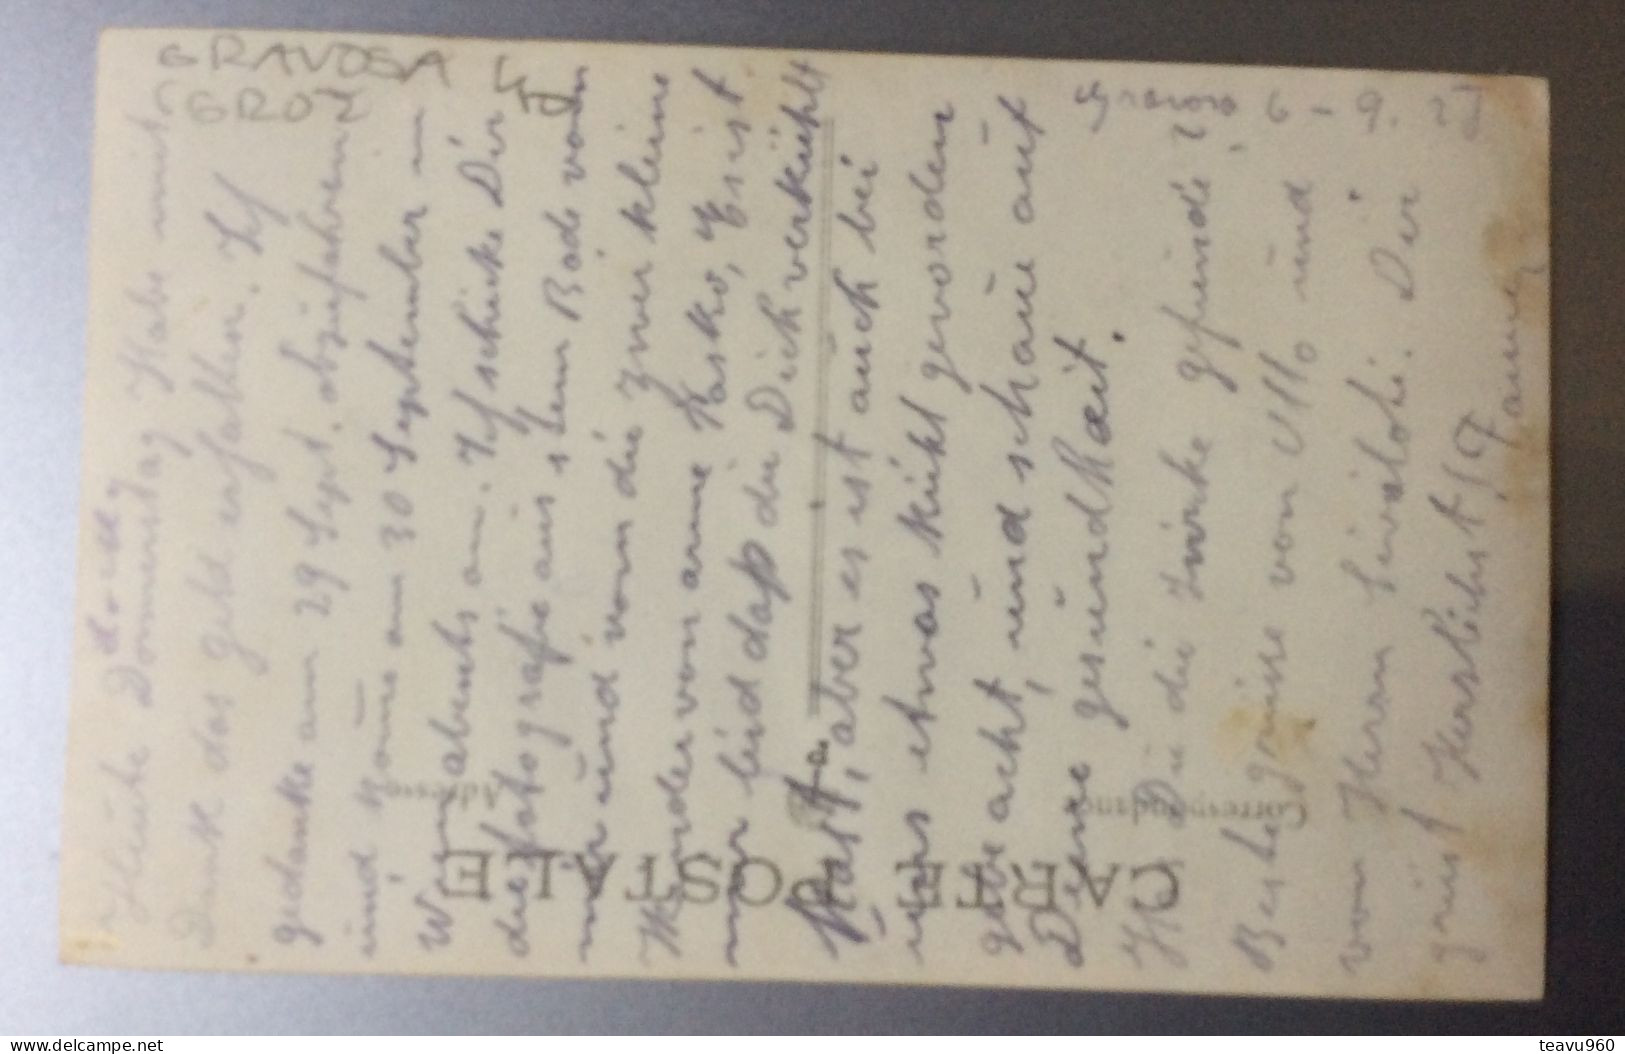 GRAVOSA
GROZ
Gravosa 6-9. 25
Heute Donnerstag Habe mit
Dank das geld erhalten. Ich
gedenke am 29 Sept. abzufahren
und kome am 30 September in
Wien abends an. Ich schicke Dir
die fotografie aus dem Bad von
mir und von die zwei kleine
Kinder von arme Kasko, Es ist
mir leid daß du Dich verkühlt
hast, aber es ist auch bei
uns etwas kühl geworden
gebe acht, und schaue auf
Deine gesundhait.
Du die
Beste grüsse von Otto und
von Herrn Dir
grüst Herzlichst
CARTE POSTALE
Correspondance
Adresse
teavu960